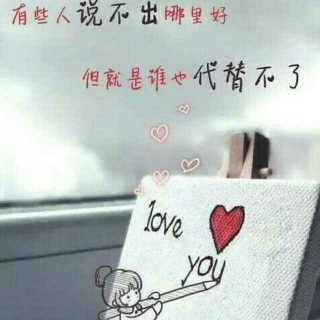 有些人说不出哪里好
但就是谁也代替不了
love
you